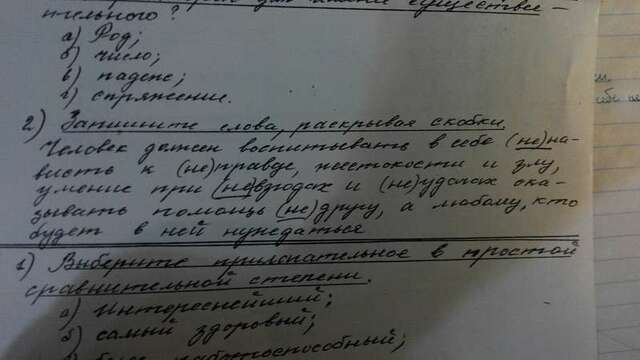 тельного?
а) Род;
б) число;
в) падеж;
г) спряжение.
2) Запишите слова, раскрывая скобки.
Человек должен воспитывать в себе (не)на-
висть к (не)правде, жестокости и злу,
умение при (не)взгодах и (не)удачах ока-
зывать помощь (не)другу, а любому, кто
будет в ней нуждаться
1) Выберите прилагательное в простой
сравнительной степени.
а) Интереснейший;
б) самый здоровый;
работоспособный;